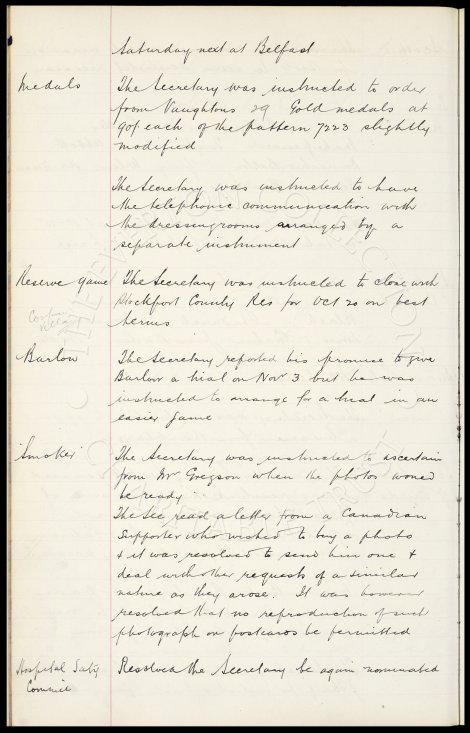 Saturday next at Belfast
Medals The Secretary was instructed to order
from Vaughtons 29 Gold medals at
90/- each of the pattern 7223 slightly
modified
The Secretary was instructed to have
the telephonic communication with
the dressing rooms arranged by a
separate instrument
Reserve game The Secretary was instructed to close with
Stockport County Res for Oct 20 on best
terms
Barlow The Secretary reported his promise to give
Barlow a trial on Nov 3 but he was
instructed to arrange for a trial in an
easier game
'Smoker' The Secretary was instructed to ascertain
from Mr Gregson when the photos would
be ready
The Sec read a letter from a Canadian
Supporter who wished to buy a photo
& it was resolved to send him one &
deal with other requests of a similar
nature as they arose. It was however
resolved that no reproduction of such
photograph on postcards be permitted
Hospital Saty Resolved the Secretary be again nominated